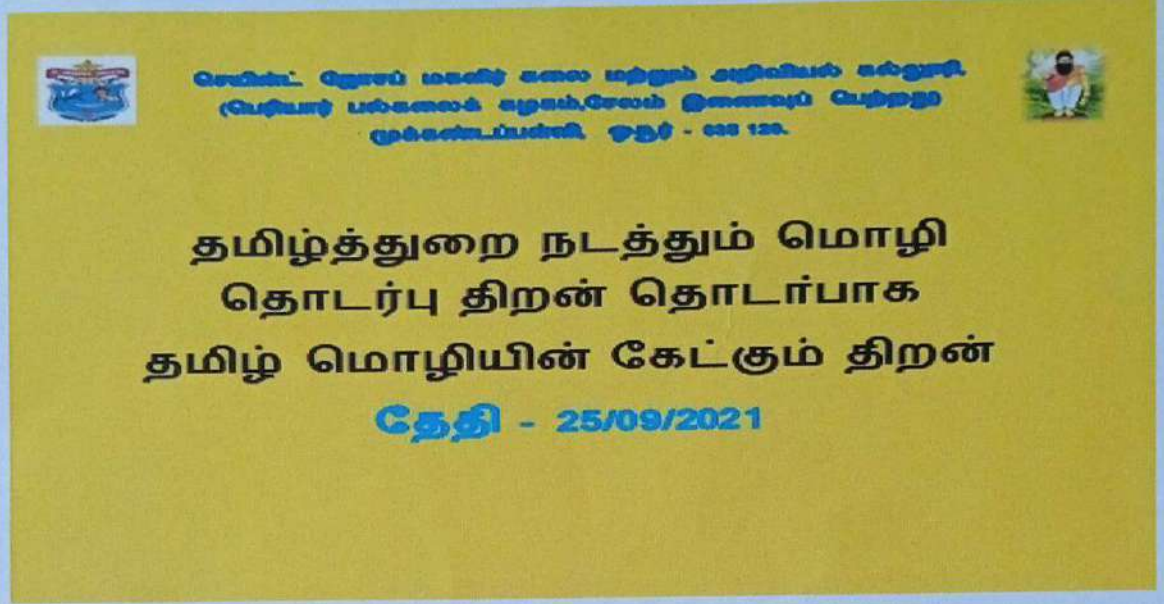 செயின்ட் ஜோசப் மகளிர் கலை மற்றும் அறிவியல் கல்லூரி,
(பெரியார் பல்கலைக் கழகம்,சேலம் இணைவுப் பெற்றது)
மூக்கண்டப்பள்ளி, ஓசூர் - 635 126.
தமிழ்த்துறை நடத்தும் மொழி
தொடர்பு திறன் தொடர்பாக
தமிழ் மொழியின் கேட்கும் திறன்
தேதி - 25/09/2021